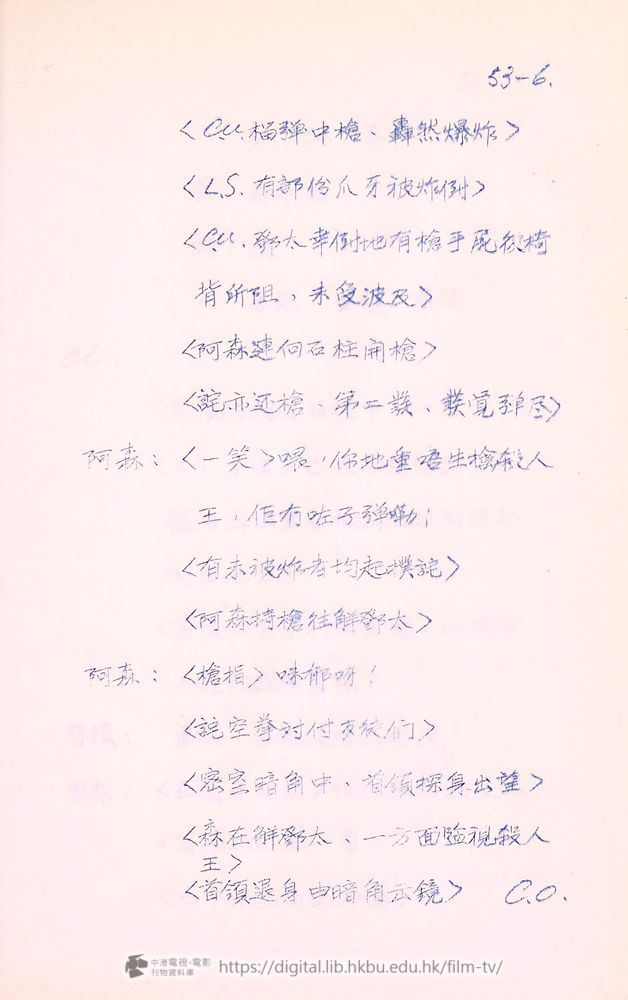 53-6.
<C.U. 榴彈中槍、轟然爆炸>
<L.S. 有部份爪牙被炸倒>
<C.U. 鄧太幸倒地有槍手屍後椅
背所阻,未受波及>
<阿森連向石柱開槍>
<詫亦还槍、第二發、發覺彈尽>
阿森:<一笑>喂,你地重唔生擒殺人
王,佢冇咗子彈嘞!
<有未被炸者均起撲詫>
<阿森持槍往解鄧太>
阿森:<槍指>咪郁呀!
<詫空拳对付歹徒们>
<密室暗角中、首領探身出望>
<森在解鄧太、一方面監視殺人
王>
<首領退身由暗角出鏡> C.O.
中港電視・電影
刊物資料庫
https://digital.lib.hkbu.edu.hk/film-tv/